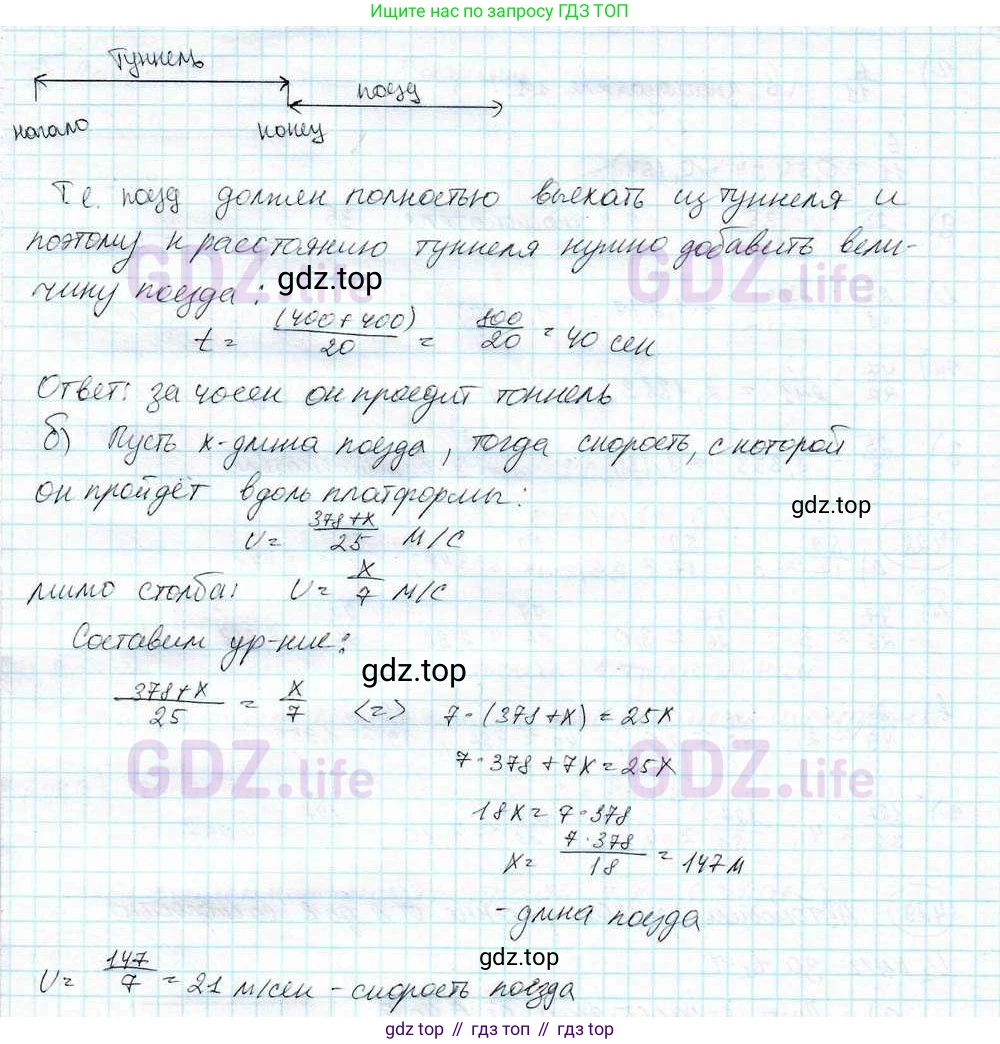 Ищите нас по запросу ГДЗ ТОП
туннель
поезд
начало
конец
Т.е. поезд должен полностью выехать из туннеля и
поэтому к расстоянию туннеля нужно добавить вели-
чину поезда:
gdz.top
GDZ.life GDZ.life
t = (400+400)/20 = 800/20 = 40 сек
Ответ: за 40сек он проедит тоннель
б) Пусть x-длина поезда, тогда скорость, с которой
он пройдёт вдоль платформы:
gdz.top
V = (378+x)/25 м/с
мимо столба: V = x/7 м/с
Составим ур-ние:
gdz.top
(378+x)/25 = x/7 <=> 7·(378+x) = 25x
7·378+7x=25x
GDZ.life GDZ.life
18x = 7·378
x = (7·378)/18 = 147 м
- длина поезда
gdz.top
V = 147/7 = 21 м/сек - скорость поезда
gdz.top // гдз топ // gdz.top